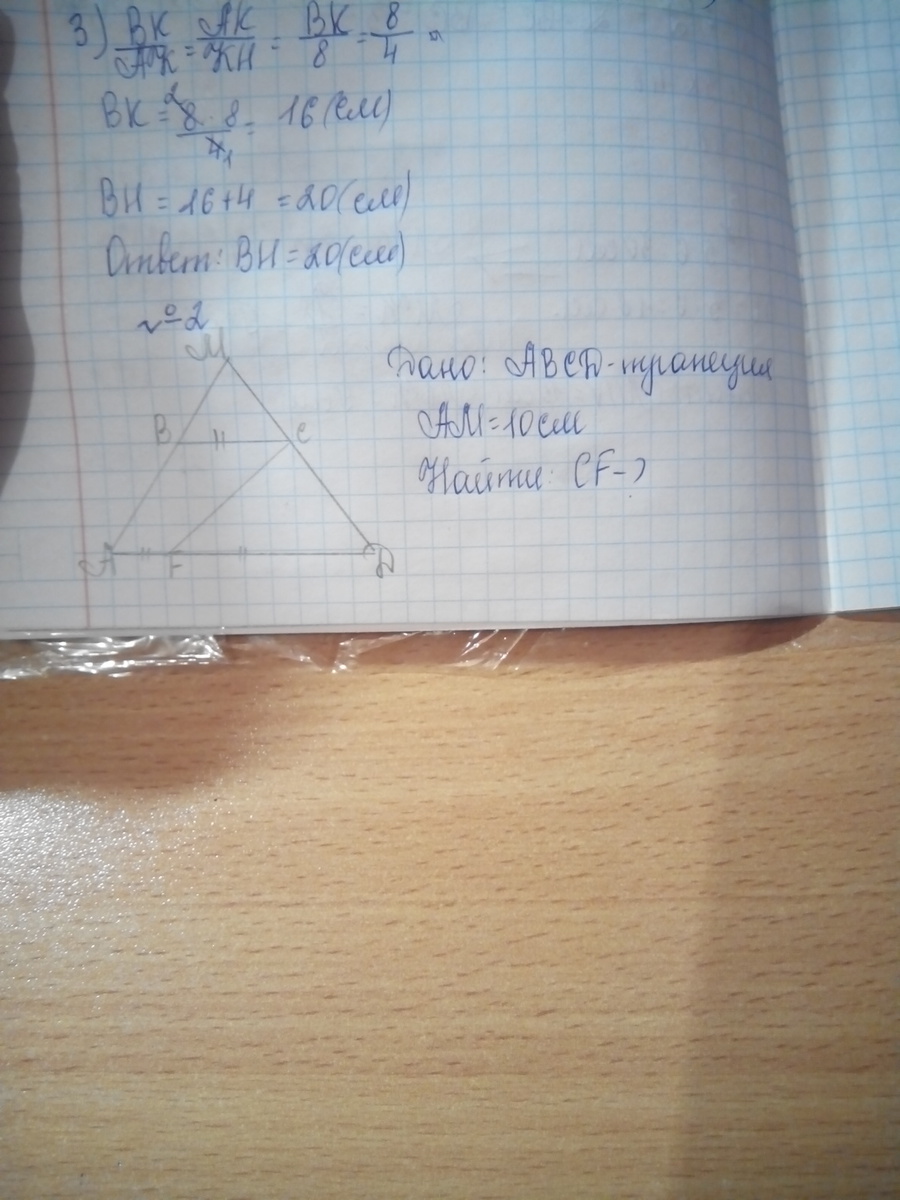 3) BK/AK = AK/KH = BK/8 = 8/4
BK = 8 · 8/4 = 16 (см)
2
1
BH = 16+4 = 20(см)
Ответ: BH = 20(см)
№2
M
Дано: ABCD-трапеция
AM=10см
B C
Найти: CF-?
A F D